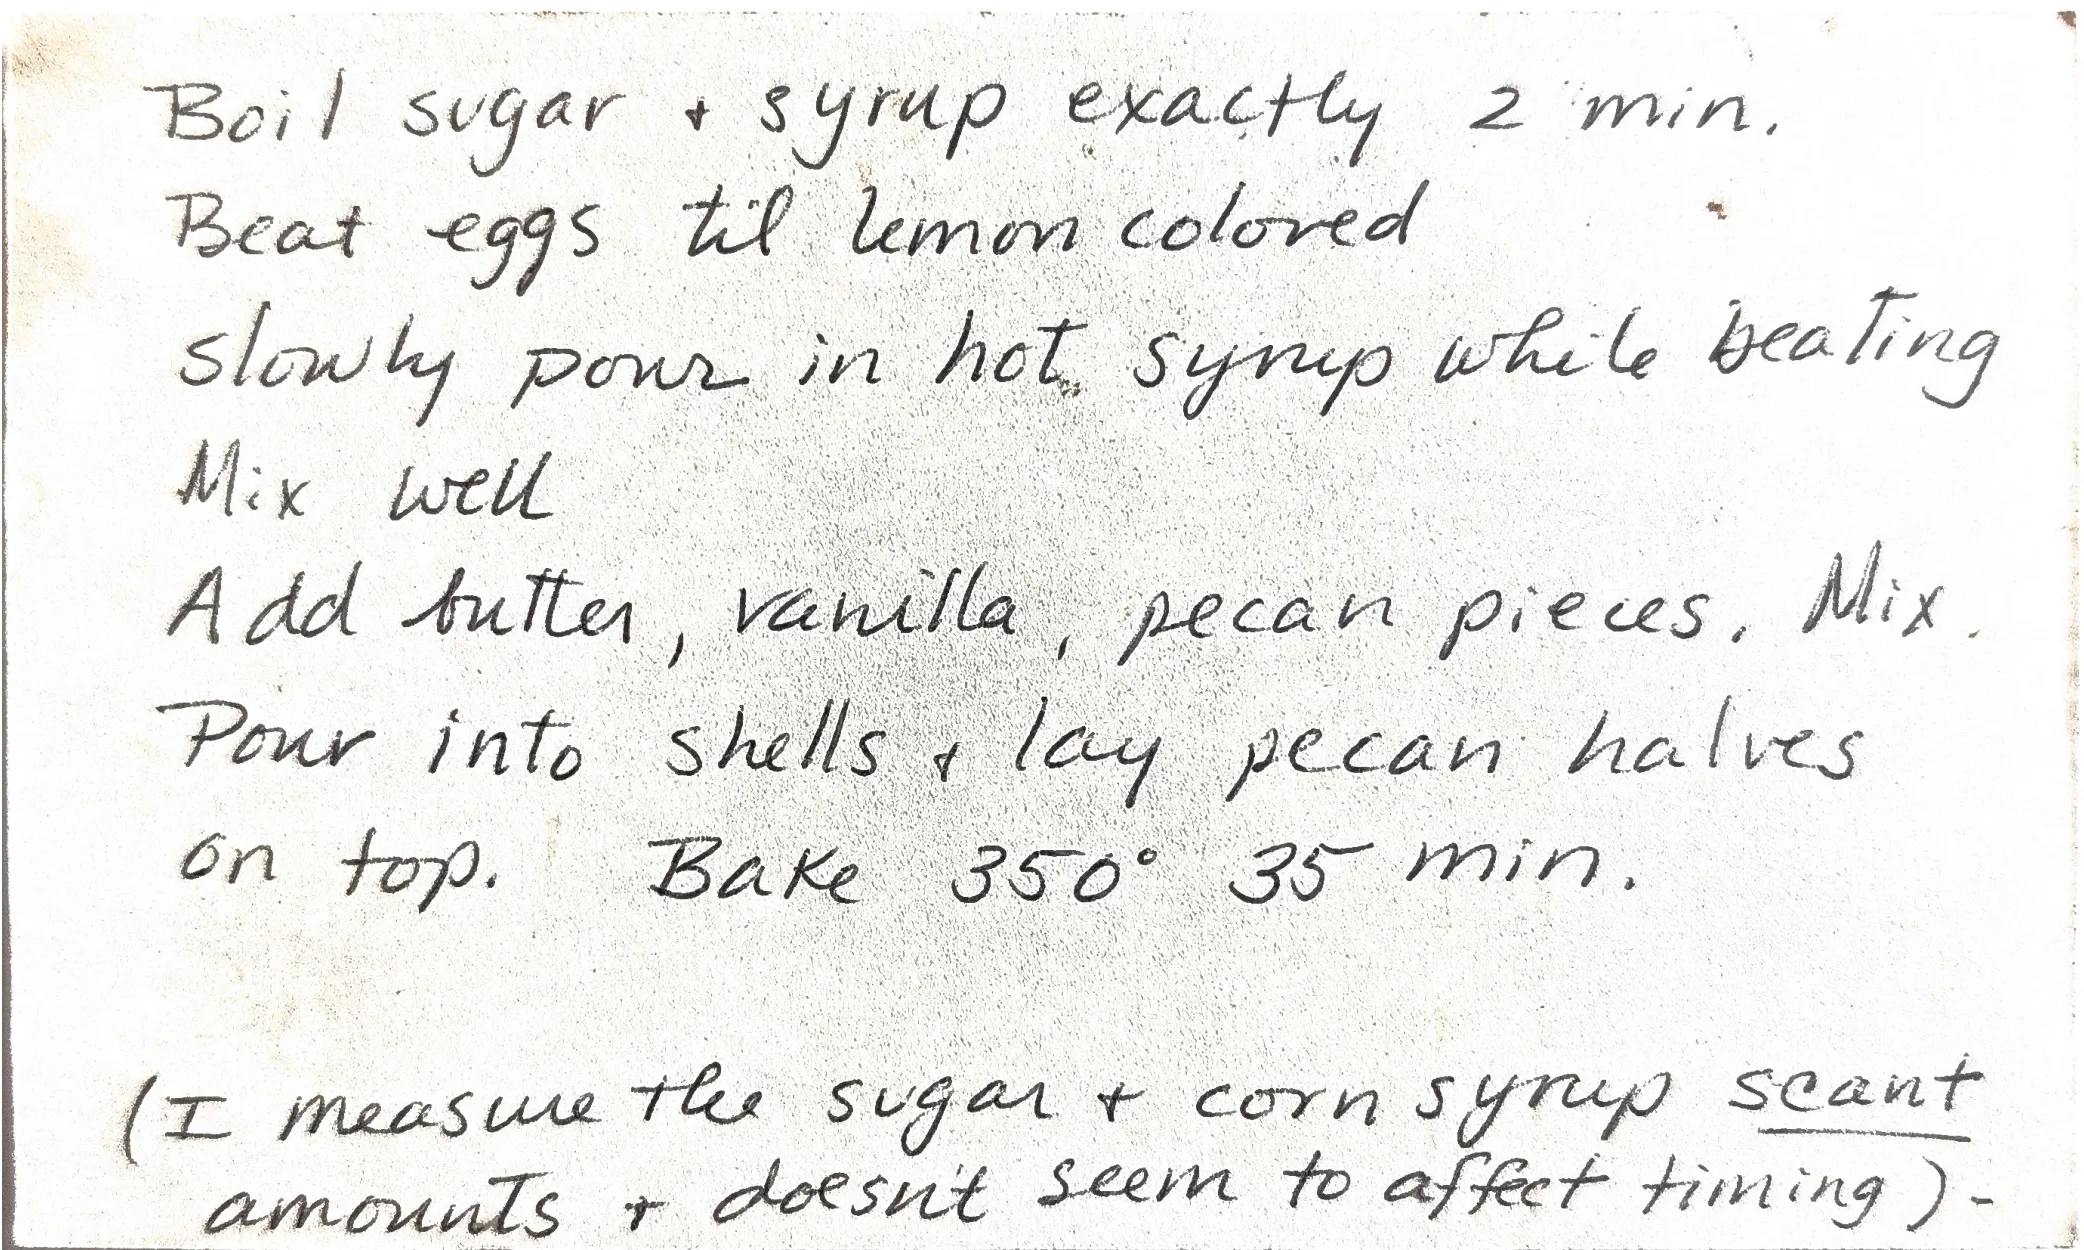 Boil sugar + syrup exactly 2 min.
Beat eggs til lemon colored
slowly pour in hot syrup while beating
Mix well
Add butter, vanilla, pecan pieces. Mix.
Pour into shells + lay pecan halves
on top. Bake 350° 35 min.
(I measure the sugar + corn syrup scant
amounts + doesn't seem to affect timing) -